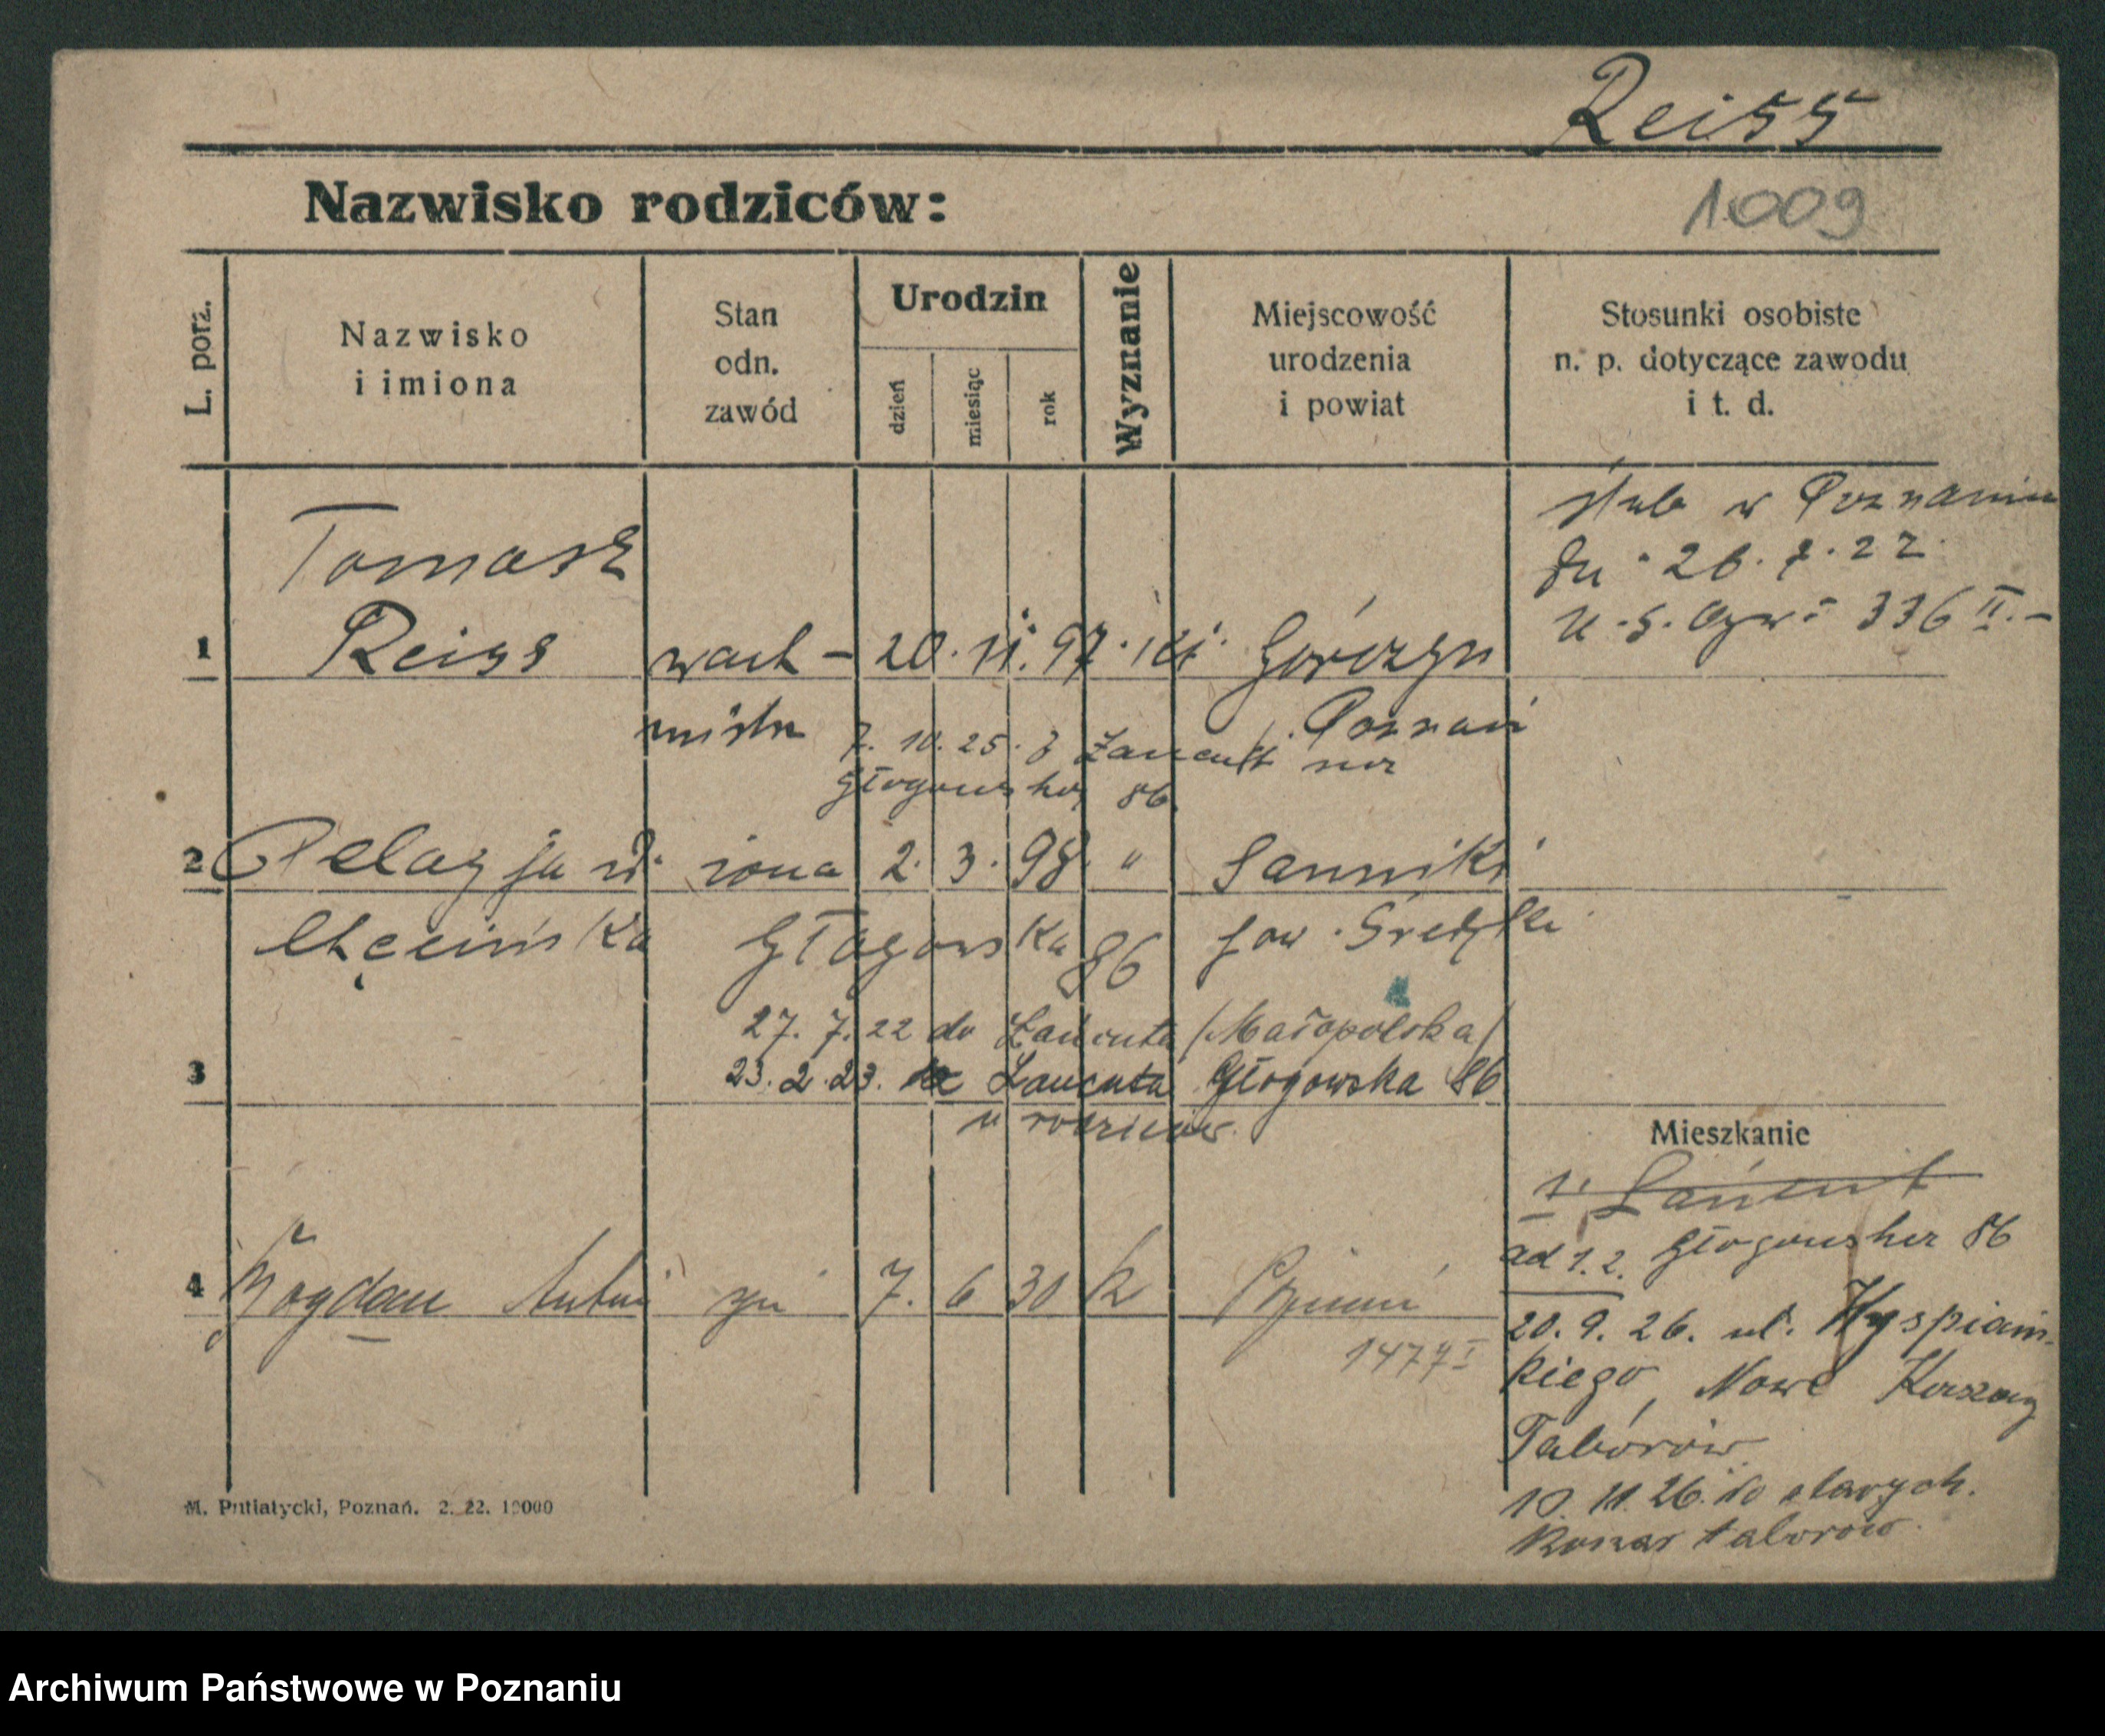 Reiss
Nazwisko rodziców:
1009
L. porz.
Nazwisko
i imiona
Stan
odn.
zawód
Urodzin
dzień
miesiąc
rok
Wyznanie
Miejscowość
urodzenia
i powiat
Stosunki osobiste
n. p. dotyczące zawodu
i t. d.
ślub w Poznaniu
dn. 26.7.22
336 II. –
1
Tomasz
Reiss
wach –
mistrz
20. 11. 97.
Górczyn
Poznań
7. 10. 25. z Łańcut
Głogowska 86
2 Pelagja
żona 2. 3. 98. "
Sanniki
Głogowska 86
pow. Średzki
27. 7. 22 do Łańcuta /Małopolska/
3
23. 2. 23. Łańcuta Głogowska 86
u rodziców.
Mieszkanie
1. Łańcut
ad 1.2. Głogowska 86
4 Bogdan
syn 7. 6 30 k
1477 I
20. 9. 26. ul. Wyspiańs-
kiego, Nowe Koszary
Taborów
10. 11. 26. do starych.
koszar taborów.
M. Putiatycki, Poznań. 2. 22. 10000
Archiwum Państwowe w Poznaniu